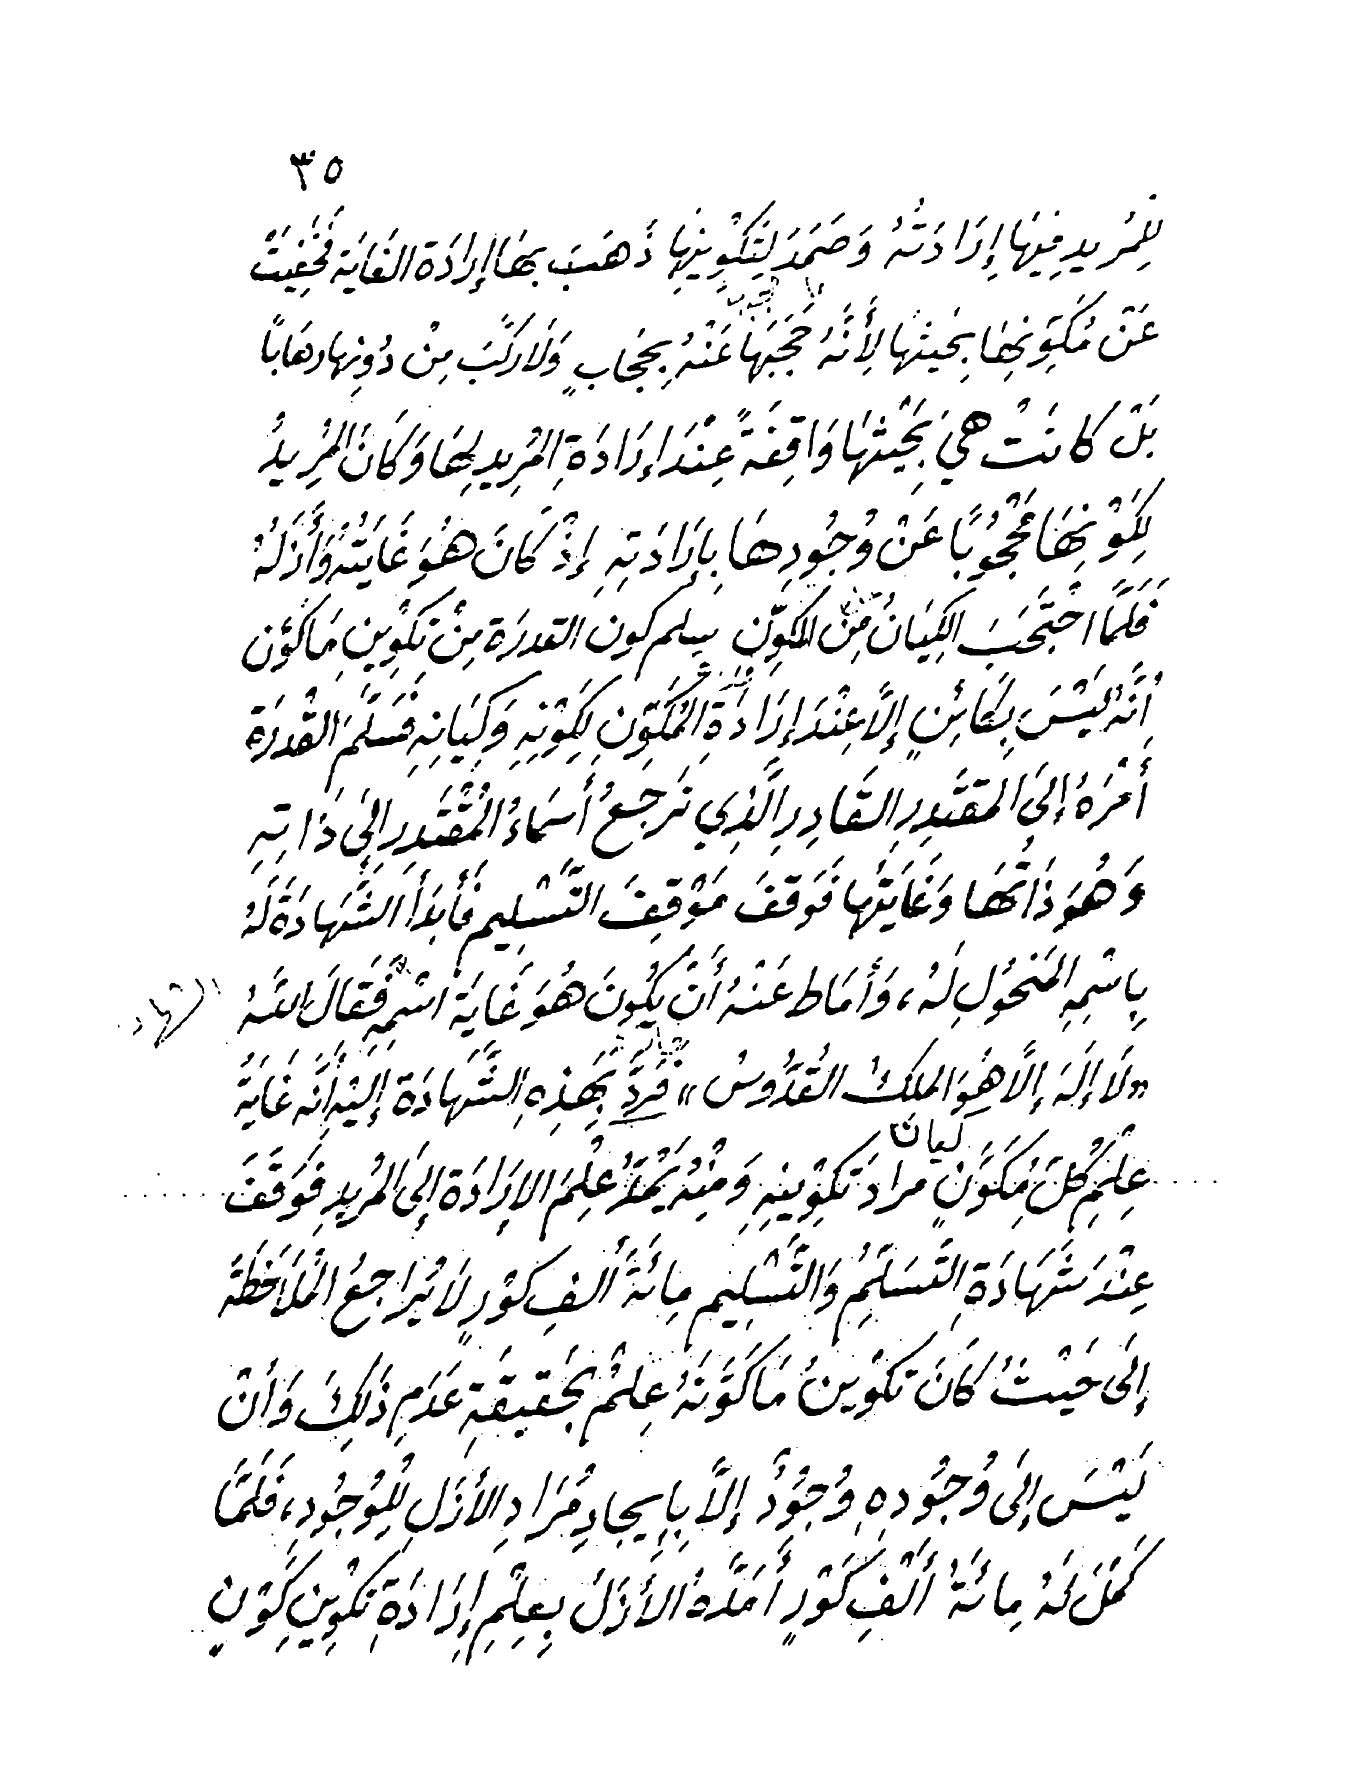 ٣٥
لِلْمُرِيدِ فِيهَا إِرَادَتُهُ وَصَمَدَ لِتَكْوِينِهَا ذَهَبَ بِهَا إِرَادَة الغَايَة فَخَفِيَتْ
عَنْ مُكَوِّنِهَا بِحَيثها لِأَنَّهُ حَجَبَهَا عَنْهُ بِحِجَابٍ وَلَا رَكَّبَ مِنْ دُونِهَا رهَابًا
بَلْ كانَتْ هِيَ بِحَيْثِهَا وَاقِفَةً عِنْدَ إِرَادَةِ المُرِيدِ لِهَا وَكَانَ المُرِيدُ
لِكَوْنِهَا مَحْجُوبًا عَنْ وُجُودِهَا بِإِرَادَتِهِ إِذْ كَانَ هُوَ غَايَتُهُ وَأَزَلَهُ
فَلَمَّا احْتَجَبَ الكِيَانُ مِنَ المُكَوِّنِ سلم كون القدرَة مِنْ تَكْوِينِ مَا كَوَّن
أَنَّهُ لَيْسَ بِكَائِنٍ إِلَّا عِنْدَ إِرَادَةِ المُكَوِّنِ لِكَوْنِهِ وَكِيَانِهِ فَسَلَّمَ القُدْرَة
أَمْرَهُ إِلَى المقتَدِرِ القَادِرِ الَّذِي تَرجَعُ أَسمَاءُ المُقْتَدِرِ إِلَى ذَاتِهِ
وَهُوَ ذَاتُهَا وَغَايَتُها فَوَقَفَ مَوْقِفَ التَّسْلِيمِ فَأَبدَأَ الشَّهَادَةَ لَهُ
بِاسْمِهِ المَنحُولِ لَهُ، وَأَمَاط عَنْهُ أَنْ يَكُونَ هُوَ غَايَة اسْمِهِ فَقَالَ اللهُ
الشهاد
«لَا إِلَهَ إِلَّا هُوَ الملكُ القُدُّوسُ» فَرَدَّ بِهَذِهِ الشَّهَادَة إِلَيْهِ أَنَّه غَايَةُ
كيان
عِلْمِ كُلِّ مُكَوَّنٍ مرادَ تَكْوِينِهِ وَمِنْهُ يُمَدُّ عِلْمَ الإِرَادَة إِلَى المُرِيدِ فَوَقَفَ
عِنْدَ شَهَادَةِ التَّسَلُّمِ وَالتَّسْلِيمِ مِائَةَ أَلفِ كَوْرٍ لَا يُرَاجِعُ المُلَاحَظَةَ
إِلَى حَيْثُ كَانَ تَكْوِينُ مَا كَوَّنَهُ عِلمٌ بِحَقِيقَةِ عَدَمِ ذَلِكَ وَأَنْ
لَيْسَ إِلَى وُجُودِهِ وُجُودٌ إِلَّا بِإِيجادِ مُرَادِ الأَزَلِ لِلْوُجُودِ، فَلَمَّا
كَمُلَ لَهُ مِائَةُ أَلْفِ كَوْرٍ أَمَدَّهُ الأَزَلُ بِعِلْمِ إِرَادَةِ تَكْوِينِ كَوْنٍ